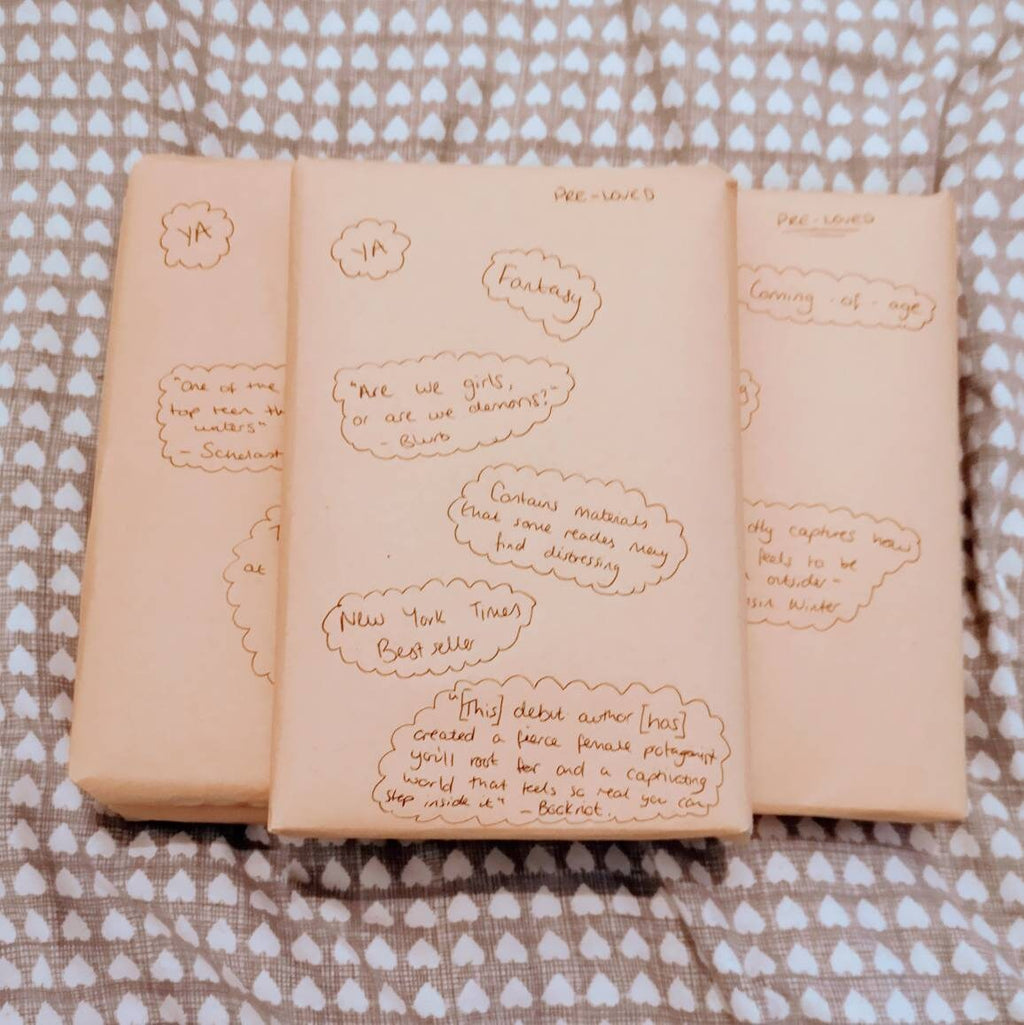 YA
"One of the
top teen th
writers"
- Scholast
T
at
PRE-LOVED
YA
Fantasy
"Are we girls,
or are we demons?"
- Blurb
Contains materials
that some readers may
find distressing
New York Times
Bestseller
"[This] debut author [has]
created a fierce female protagonist
you'll root for and a captivating
world that feels so real you can
step inside it" - Bookriot.
PRE-LOVED
Coming-of-age
g
tly captures how
feels to be
outsider -
sin Winter